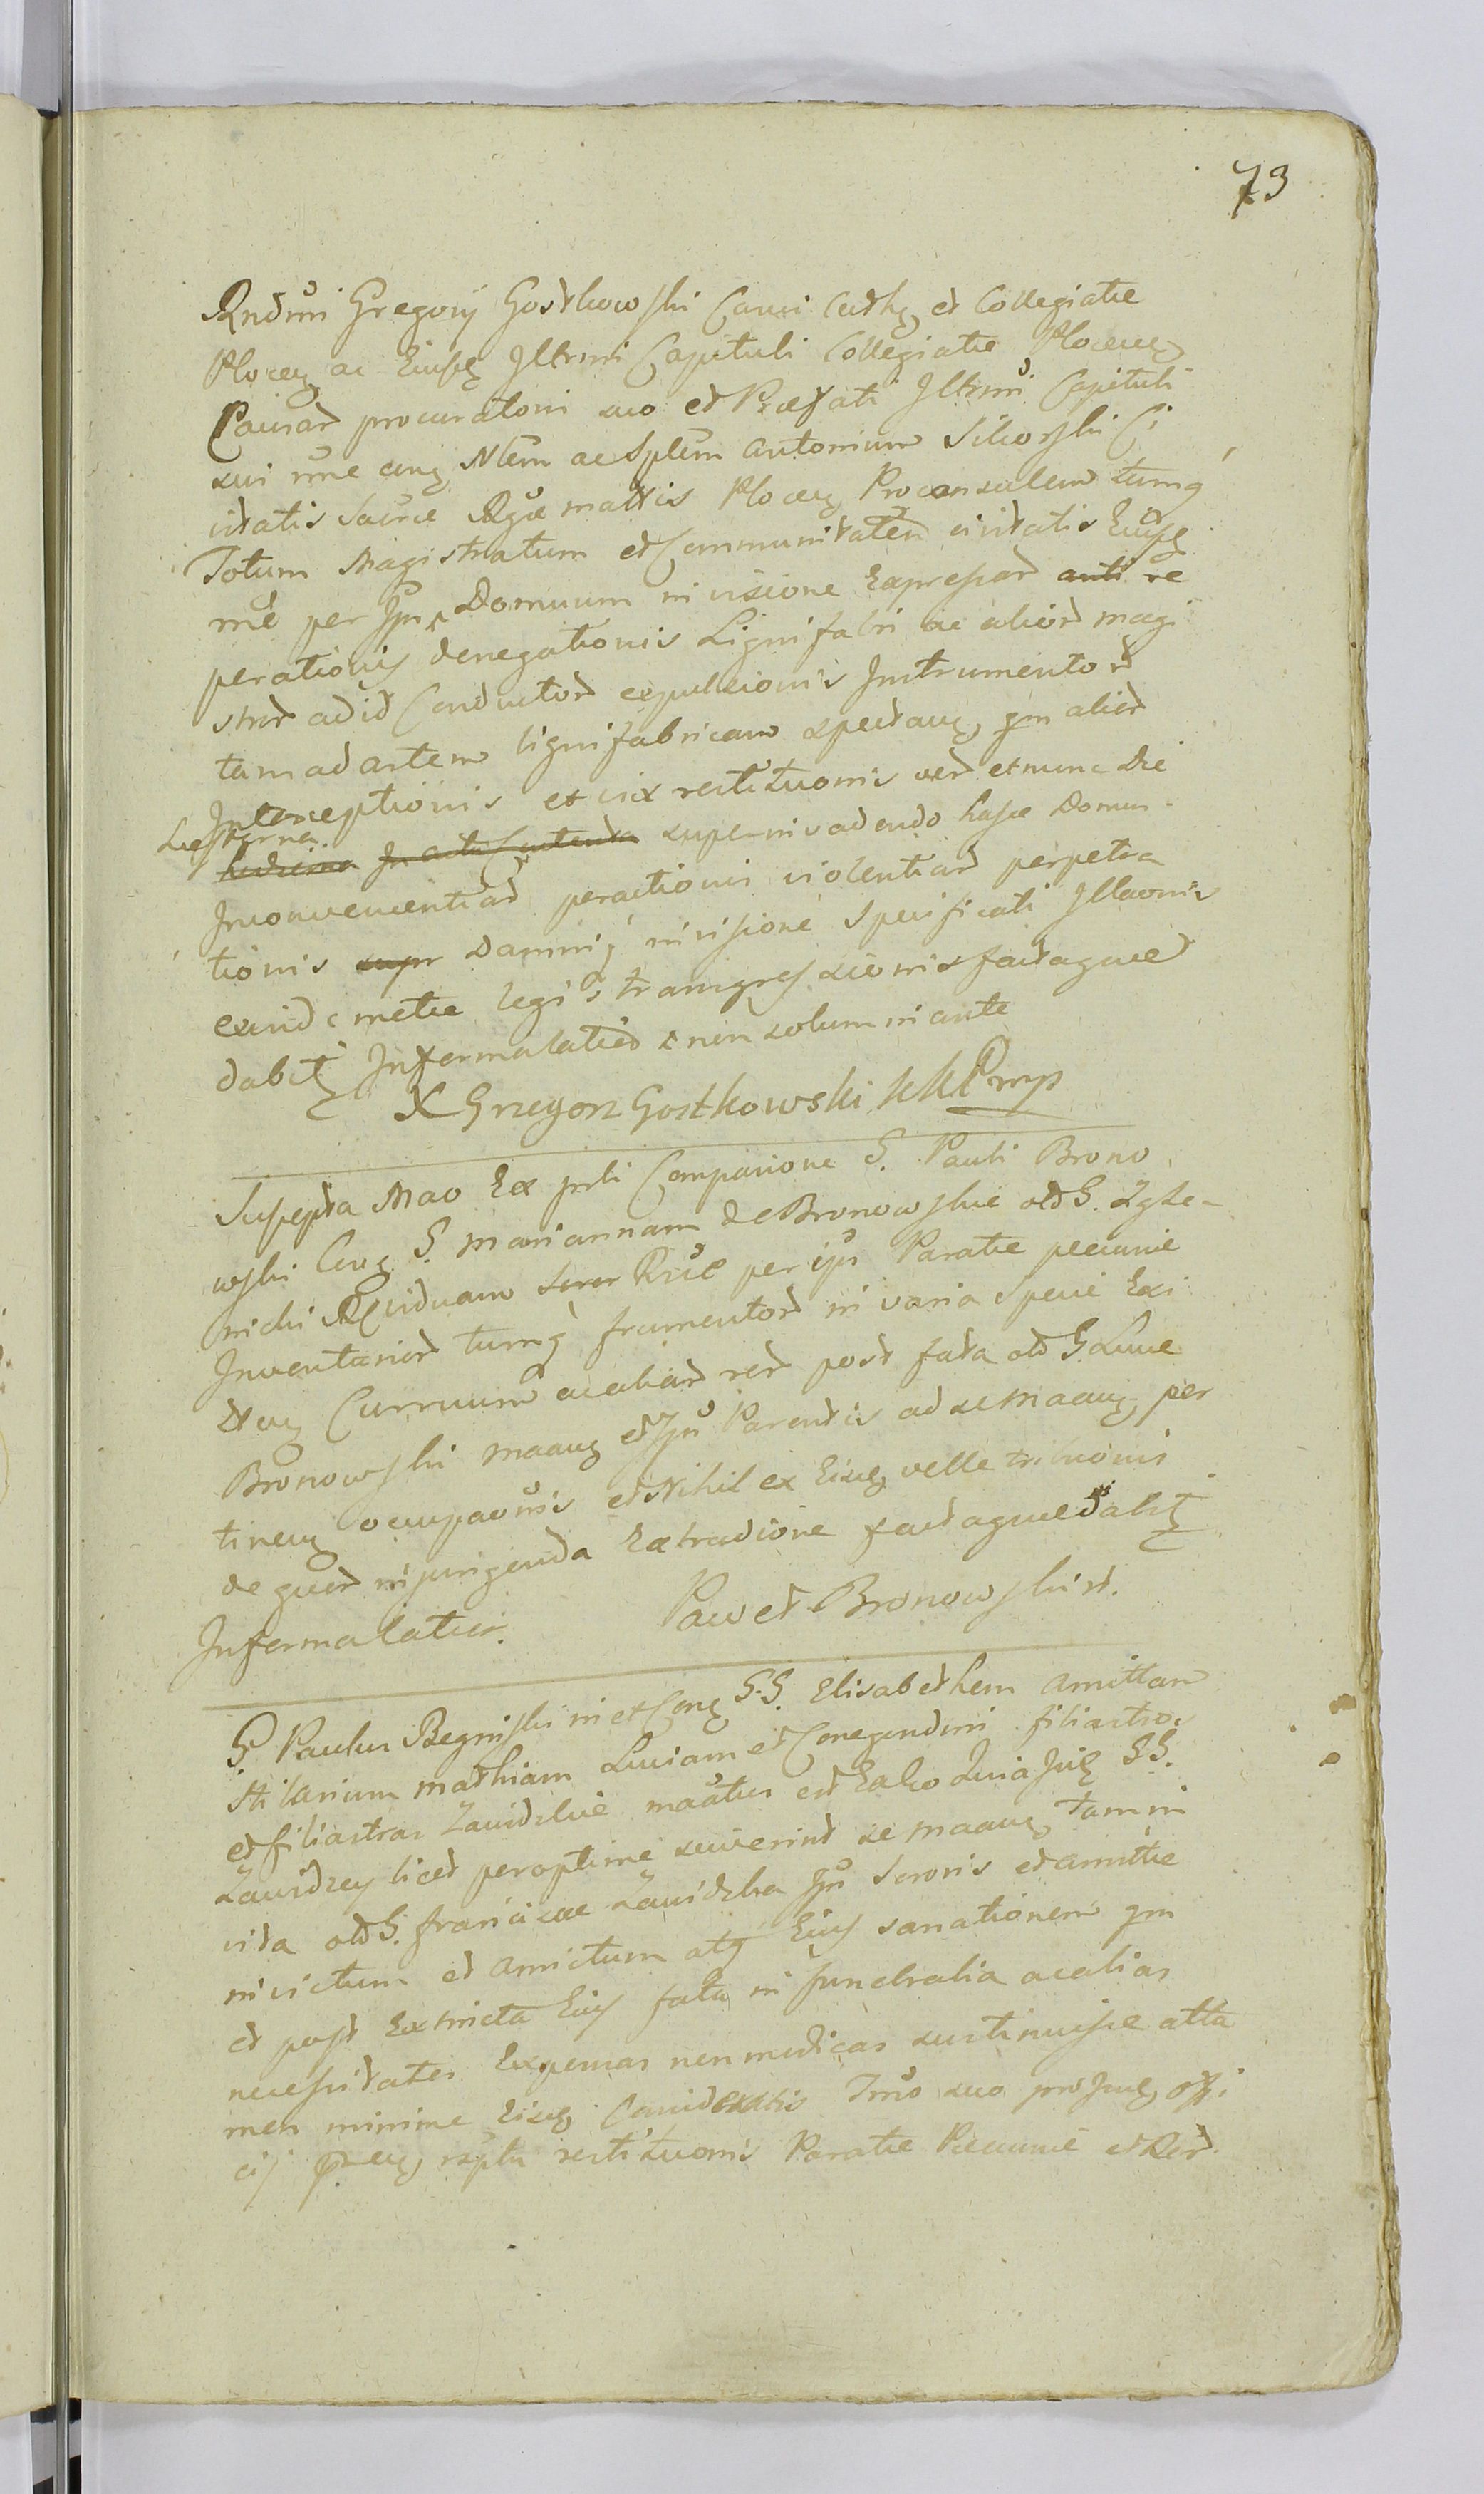 73
Rndmi Gregorij Gostkowski Canci Cathę et Collegiatæ
Plocen ac Eiusdę Illrmi Capituli Collegiatæ Plocen
Causar procuratoris suo et Præfati Illrmi Capituli
sui nne cnq Nlem ac Splem Antonium Sikorski Ci
vitatis Sacræ Rgæ mattis Plocen Proconsulem tumq
Totum Magistratum et Communitatem civitatis Eiusdę
rne per Ipn Domuum in visione Expressar anti re
perationis denegationis Lignifabri ac alior magi
stror ad id Conductor expulsionis Instrumentor
tam ad artem lignifabricam spectanę qm alior
Interceptionis et vix restitutionis ver et nunc Die
Hesterna
hodierna In actu Contenta super invadendo hasce Domus
Inconvenientiar peractionis violentiar perpetra
tionis supr Damniq in visione Specificati Illaonis
exinde metæ legis transgressionis factaque
dabit Informalatior non solum in ante
X Grzegorz Gostkowski KKP mp
Suscepta Mao Ex prti Comparione G. Pauli Brono
wski Cnq G. Mariannam de Bronowskie olim G. Zyle-
nicki Rviduam Soror Rnæ per ipn Paratæ pecuniæ
Inventarior tumq frumentor in varia Specie Exi
sten Curruum ac aliar rer post fata olim G. Lucæ
Bronowski maanę et Ipn Parentis ad se maanę per
tinen occupaonis et Nihil ex Eisdę velle tribuonis
de quer inpurigenda Extradione factaque dabit
Informalatior.
Paweł Bronowski st.
G. Paulus Begniski in et Cnq G.G. Elisabethem Amittam
Hilarium Mathiam Luciam et Conegundim filiastros
et filiastras Zawidzkie maatus est Ex eo Quia Iidę G.G.
Zawidzcy licet peroptime sciverint se maanę Tam in
vita olim G. Franciscæ Zawidzka Ipn Sororis et Amittæ
in victum et amictum atq Eius sanationem qm
et post Extincta Eius fata in funebralia ac alias
necessitates Expensas non modicas sustinuisse atta
men minime Eisdę Consideratis Imo suo pro Iudę offi
cij Præn rsptu restituonis Paratæ Pecuniæ et Rer